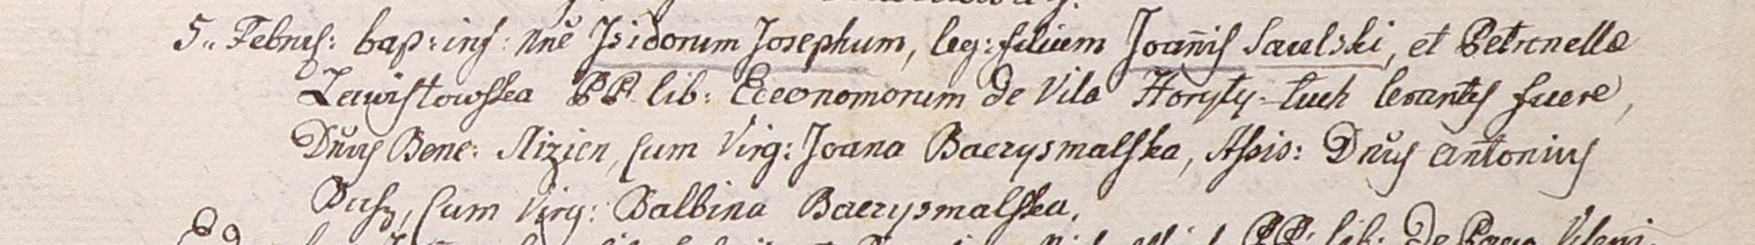 5.. Febrūs: bap: inf: nnē Jsidorum Josephum, leg: filium Joan̄is Saulski, et Petronellæ
Lewistowska PP lib: Œconomorum de Vila Horyty-tuch levantes fuere,
Dnūs Bene: Nizien, cum Virg: Joana Baczysmalska, Assis: Dnūs Antonius
cum Virg: Balbina Baczysmalska.
PP: lib: De